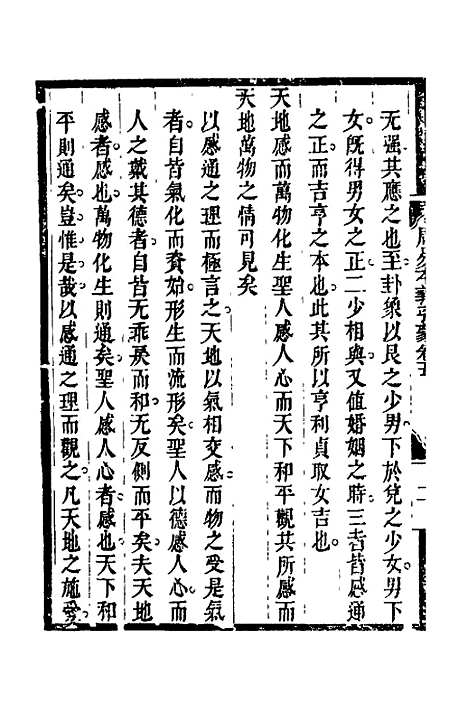 无强其應之也至卦象以艮之少男下於兌之少女男下
女旣得男女之正二少相與又值婚姻之時三者皆感通
之正而吉亨之本也此其所以亨利貞取女吉也
天地感而萬物化生聖人感人心而天下和平觀其所感而
天地萬物之情可見矣
以感通之理而極言之天地以氣相交感而物之受是氣
者自皆氣化而資始形生而流形矣聖人以德感人心而
人之戴其德者自皆无乖戾而和无反側而平矣夫天地
感者感也萬物化生則通矣聖人感人心者感也天下和
平則通矣豈惟是哉以感通之理而觀之凡天地之施受